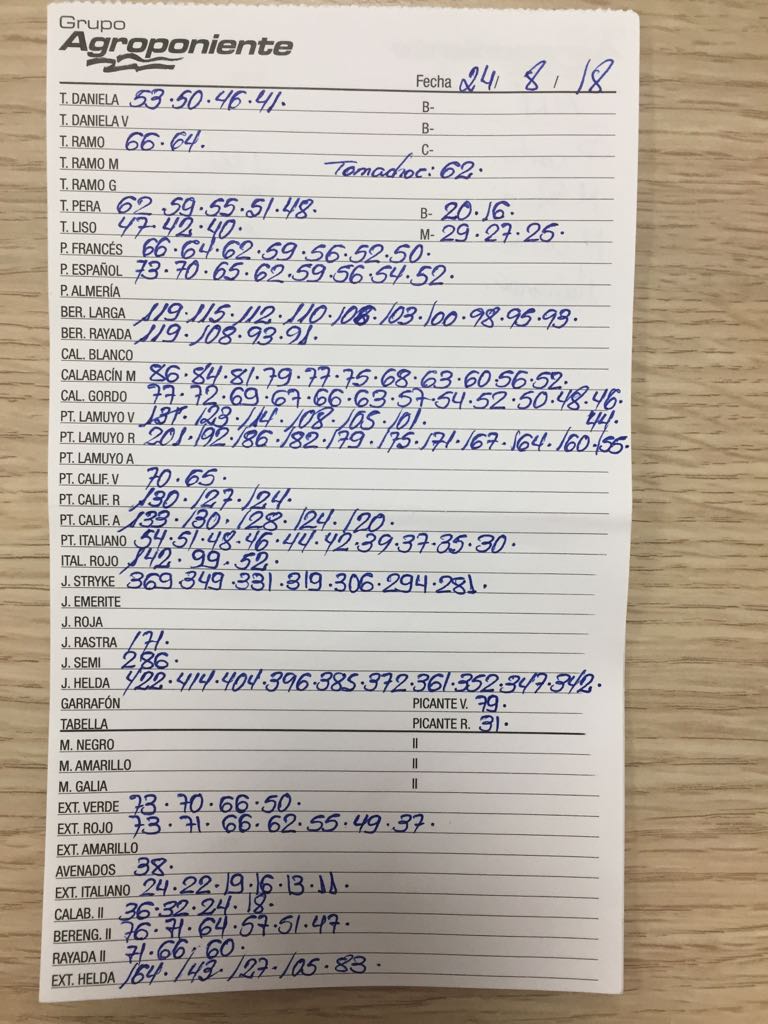 Grupo
Agroponiente
Fecha 24/ 8 / 18
T. DANIELA 53·50·46·41· B-
T. DANIELA V B-
T. RAMO 66·64. C-
T. RAMO M Tomachoc: 62·
T. RAMO G
T. PERA 62 59·55·51·48· B- 20·16·
T. LISO 47·42·40· M- 29·27·25·
P. FRANCÉS 66·64·62·59·56·52·50·
P. ESPAÑOL 73·70·65·62·59·56·54·52·
P. ALMERÍA
BER. LARGA 119·115·112·110·106·103·100·98·95·93·
BER. RAYADA 119·108·93·91·
CAL. BLANCO
CALABACÍN M 86·84·81·79·77·75·68·63·60·56·52·
CAL. GORDO 77·72·69·67·66·63·57·54·52·50·48·46·
44·
PT. LAMUYO V 123·114·108·105·101·
PT. LAMUYO R 201·192·186·182·179·175·171·167·164·160·155·
PT. LAMUYO A
PT. CALIF. V 70·65·
PT. CALIF. R 130·127·124·
PT. CALIF. A 133·130·128·124·120·
PT. ITALIANO 54·51·48·46·44·42·39·37·35·30·
ITAL. ROJO 142·99·52·
J. STRYKE 369·349·331·319·306·294·281·
J. EMERITE
J. ROJA
J. RASTRA 171·
J. SEMI 286·
J. HELDA 422·414·404·396·385·372·361·352·347·342·
GARRAFÓN PICANTE V. 79·
TABELLA PICANTE R. 31·
M. NEGRO II
M. AMARILLO II
M. GALIA II
EXT. VERDE 73·70·66·50·
EXT. ROJO 73·71·66·62·55·49·37·
EXT. AMARILLO
AVENADOS 38·
EXT. ITALIANO 24·22·19·16·13·11·
CALAB. II 36·32·24·18·
BERENG. II 76·71·64·57·51·47·
RAYADA II 71·66·60·
EXT. HELDA 164·143·127·105·83·